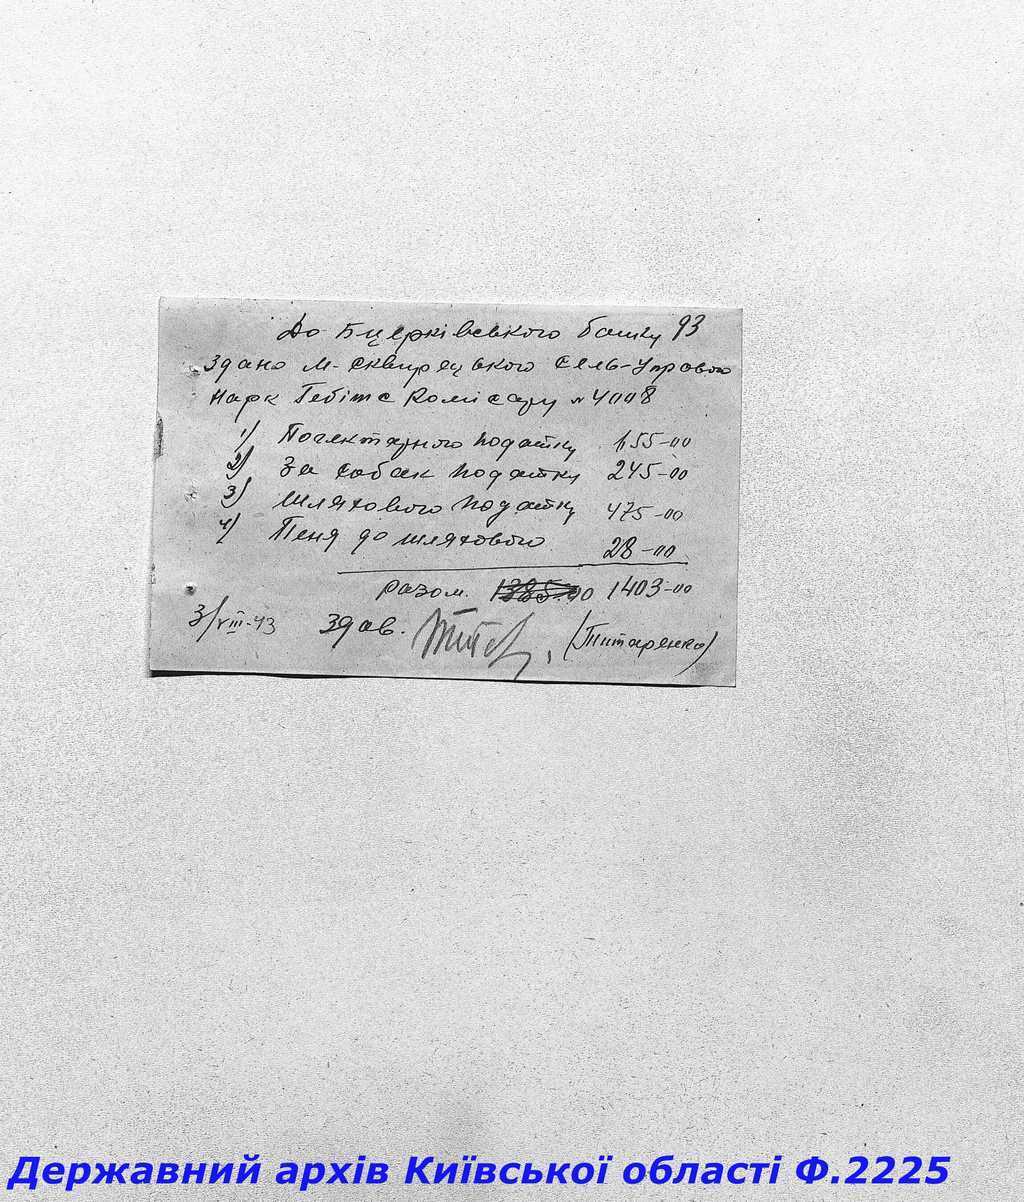 До Бцерківського банку 93
Здано М-Сквирецького Сель-Управою
Марк Гебітс Комісару № 4008
1) Погектарного податку 655-00
2) За собак податку 245-00
3) Шляхового податку 475-00
4) Пеня до шляхового 28-00
разом. 1403-00
3/VIII-43 Здав. (Титаренко)
Державний архів Київської області Ф.2225